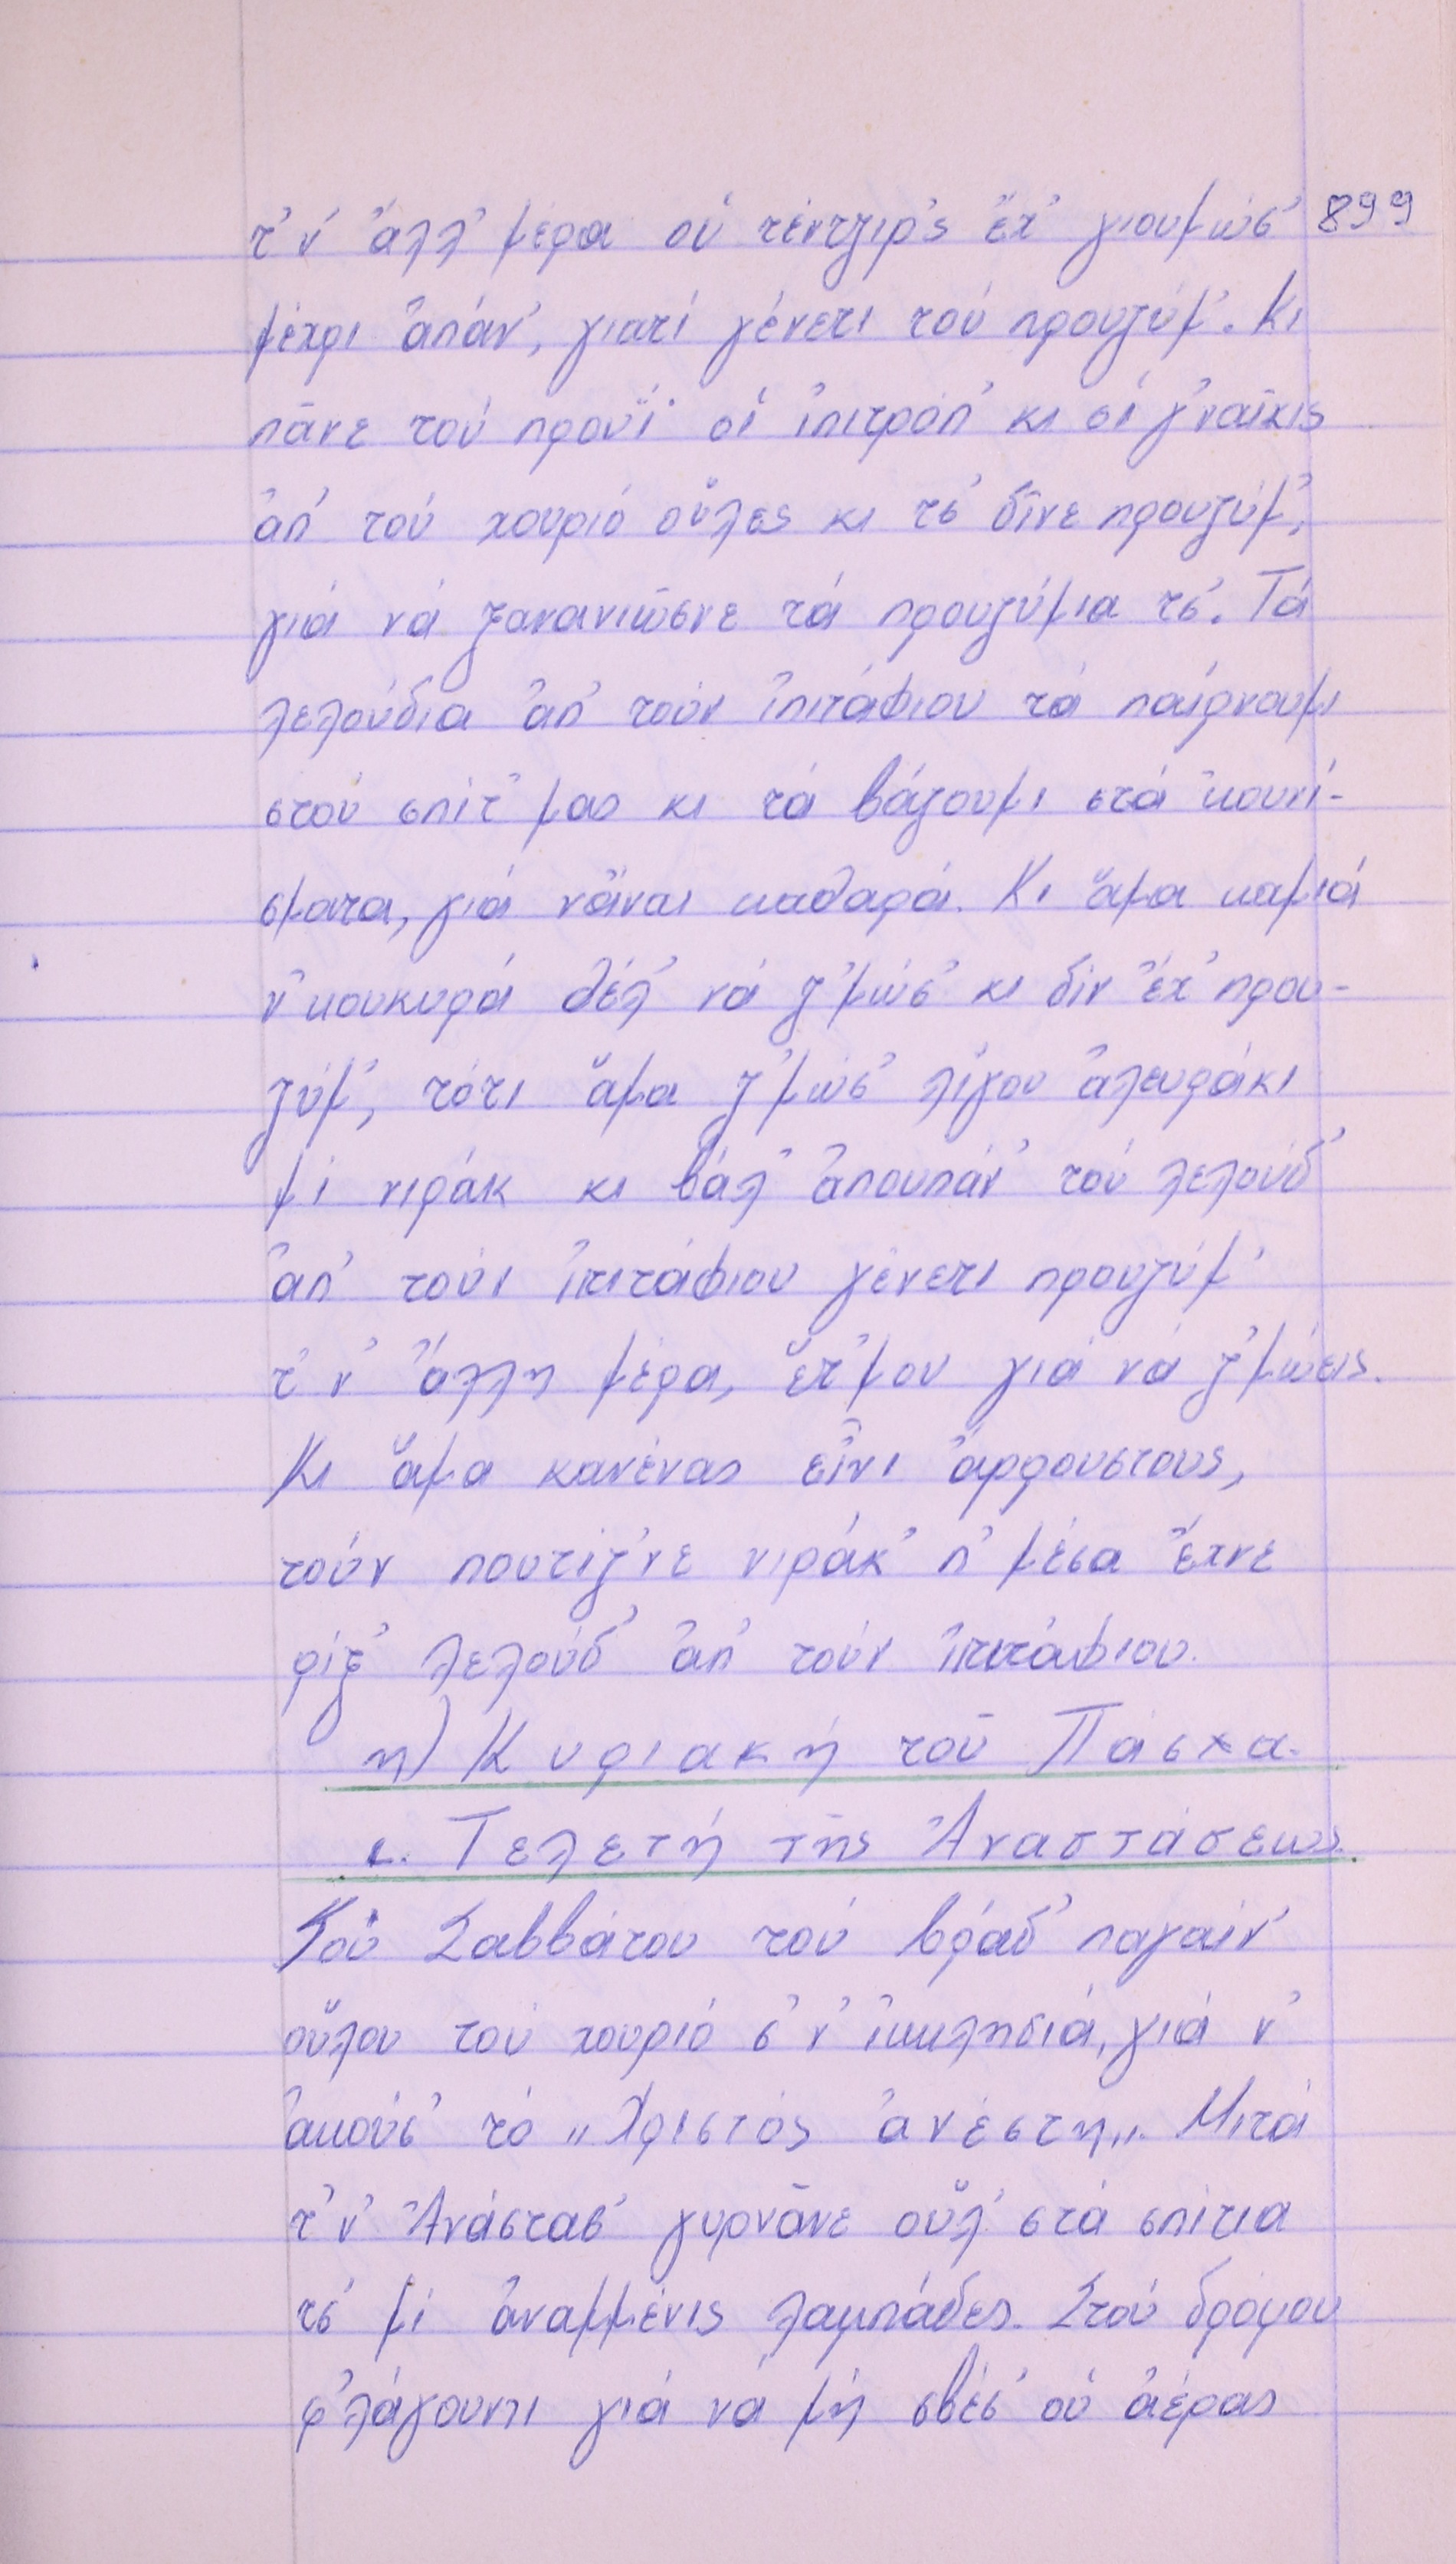 τ' ν' ἄλλ' μέρα οὑ τέντζιρ'ς ἔχ' γιουμώσ' 899
μέχρι ἀπάν', γιατί γένετι τού προυζύμ'. Κι
πᾶνε τού προυΐ οἱ ἰπιτρόπ' κι οἱ γ'ναῖκις
ἀπ' τού χουριό οὗλες κι τσ' δῖνε προυζύμ',
γιά νά ξανανιῶσνε τά προυζύμια τσ'. Τά
λελούδια ἀπ' τούν ἰπιτάφιου τά παίρνουμι
στού σπίτ' μας κι τά βάζουμι στά κουνί-
σματα, γιά νἆναι καθαρά. Κι ἅμα καμιά
ν'κουκυρά θέλ' νά ζ'μώσ' κι δέν ἔχ' πρου-
ζύμ', τότι ἅμα ζ'μώσ' λίγου ἀλευράκι
μί νιράκ κι βάλ' ἀπουπάν' τού λελούδ'
ἀπ' τούν ἰπιτάφιου γένετι προυζύμ'
τ' ν' ἄλλη μέρα, ἕτ'μου γιά νά ζ'μώεις.
Κι ἅμα κανένας εἶνι ἄρρουστους,
τούν πουτίζ'νε νιράκ' π' μέσα ἔχνε
ρίξ' λελούδ' ἀπ' τούν ἰπιτάφιου.
η) Κυριακή τοῦ Πάσχα.
ι. Τελετή τῆς Ἀναστάσεως.
Τού Σαββάτου τού βράδ' παγαίν'
οὗλου τού χουριό σ' ν' ἰκκλησιά, γιά ν'
ἀκούσ' τό „Χριστός ἀνέστη„. Μιτά
τ' ν' Ἀνάστασ' γυρνᾶνε οὗλ' στά σπίτια
τσ' μί ἀναμμένις λαμπάδες. Στού δρόμου
φ'λάγουντι γιά νά μή σβέσ' οὑ ἀέρας